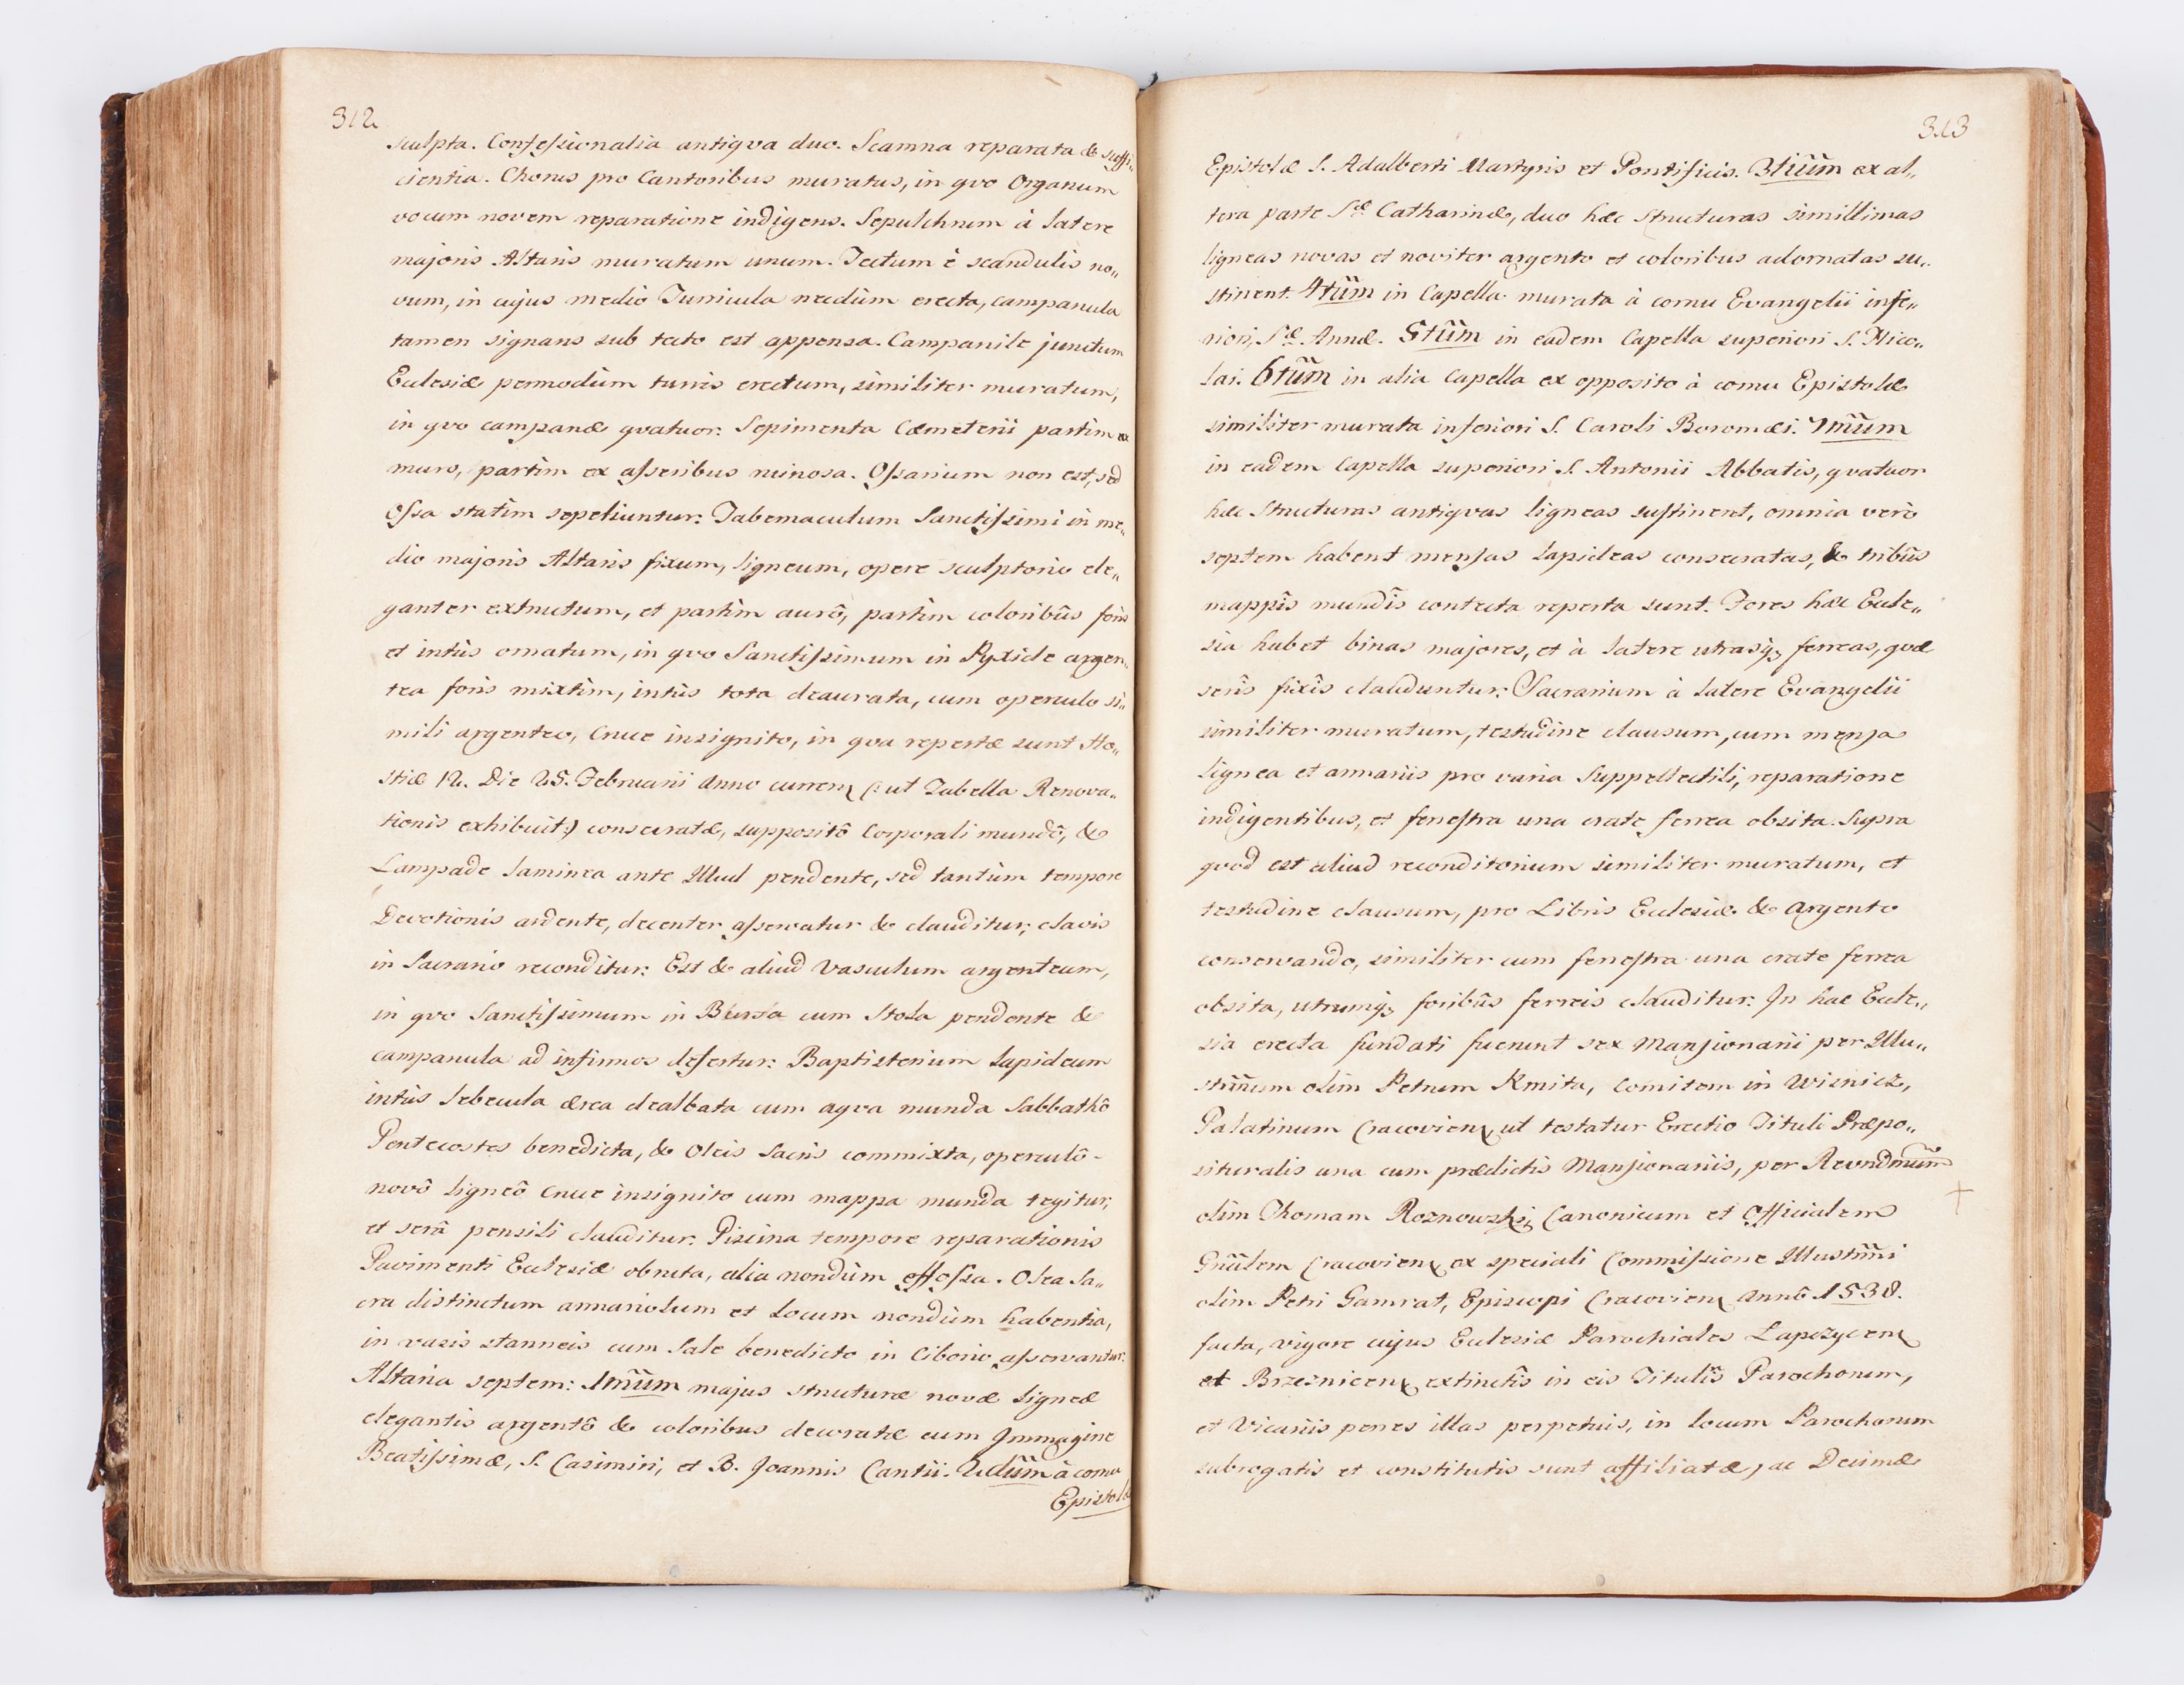 312
sculpta. Confessionalia antiqva duo. Scamna reparata & suffi„
cientia. Chorus pro Cantoribus muratus, in qvo Organum
vocum novem reparatione indigens. Sepulchrum à latere
majoris Altaris muratum unum. Tectum è scandulis no„
vum, in cujus medio Turricula necdùm erecta, campanula
tamen signans sub tecto est appensa. Campanile junctum
Eclesiæ permodùm turris erectum, similiter muratum,
in qvo campanæ qvatuor. Sepimenta Cæmeterii partim ex
muro, partim ex asseribus ruinosa. Ossarium non est, sed
ossa statim sepeliuntur. Tabernaculum Sanctissimi in me„
dio majoris Altaris fixum, ligneum, opere sculptorio ele„
ganter extructum, et partìm aurô, partìm coloribûs foris
et intùs ornatum, in qvo Sanctissimum in Pyxide argen„
tea foris mixtìm, intùs tota deaurata, cum operculo si„
mili argenteo, Cruce insignito, in qva repertæ sunt Ho„
stiæ 12. Die 25. Februarii Anno curren (: ut Tabella Renova„
tionis exhibuit:) consecratæ, suppositô Corporali mundô, &
Lampade laminea ante Illud pendente, sed tantùm tempore
Devotionis ardente, decenter asservatur & clauditur, clavis
in Sacrario reconditur. Est & aliud Vasculum argenteum,
in qvo Sanctissimum in Bursa cum Stola pendente &
campanula ad infirmos defertur. Baptisterium lapideum
intùs lebecula ærea dealbata cum aqva munda Sabbathô
Pentecostes benedicta, & Oleis Sacris commixta, operculô
novô ligneô Cruce insignito cum mappa munda tegitur,
et serâ pensili clauditur. Piscina tempore reparationis
Pavimenti Eclesiæ obruta, alia nondùm effossa. Olea Sa„
cra distinctum armariolum et locum nondùm habentia,
in vasis stanneis cum Sale benedicto in Ciborio asservantur.
Altaria septem: 1mum majus structuræ novæ ligneæ
elegantis argentô & coloribus decoratæ cum Immagine
Beatissimæ, S. Casimiri, et B. Joannis Cantii. 2dum à cornu
Epistolæ
313
Epistolæ S. Adalberti Martyris et Pontificis. 3tium ex al„
tera parte Sæ Catharinæ, duo hæc Structuras simillimas
ligneas novas et noviter argento et coloribus adornatas su„
stinent. 4tum in Capella murata à cornu Evangelii infe„
riori, Sæ Annæ. 5tum in eadem Capella superiori S. Nico„
lai. 6tum in alia Capella ex opposito à cornu Epistolæ
similiter murata inferiori S. Caroli Boromæi. 7mum
in eadem Capella superiori S. Antonii Abbatis, qvatuor
hæc Structuras antiqvas ligneas sustinent, omnia verò
septem habent mensas lapideas consecratas, & tribûs
mappis mundis contecta reperta sunt. Fores hæc Ecle„
sia habet binas majores, et à latere utrasq; ferreas, qvæ
seris fixis clauduntur. Sacrarium à latere Evangelii
similiter muratum, testudine clausum, cum mensa
lignea et armariis pro varia Suppellectili, reparatione
indigentibus, et fenestra una crate ferrea obsita. Supra
qvod est aliud reconditorium similiter muratum, et
testudine clausum, pro Libris Eclesiæ & Argento
conservando, similiter cum fenestra una crate ferrea
obsita, utrumq; foribûs ferreis clauditur. In hac Ecle„
sia erecta fundati fuerunt sex Mansionarii per Illu„
strimum olim Petrum Kmita, Comitem in Wisnicz,
Palatinum Cracovien ut testatur Erectio Tituli Præpo„
situralis una cum prædictis Mansionariis, per Revndmum
olim Thomam Roznowski, Canonicum et Officialem
Gnalem Cracovien ex speciali Commissione Illustmi
olim Petri Gamrat, Episcopi Cracovien Annô 1538.
facta, vigore cujus Eclesiæ Parochiales Lapczycen
et Brzeznicen extinctis in eis Titulis Parochorum,
et Vicariis penes illas perpetuis, in locum Parochorum
subrogatis et constitutis sunt affiliatæ, ac Decimæ